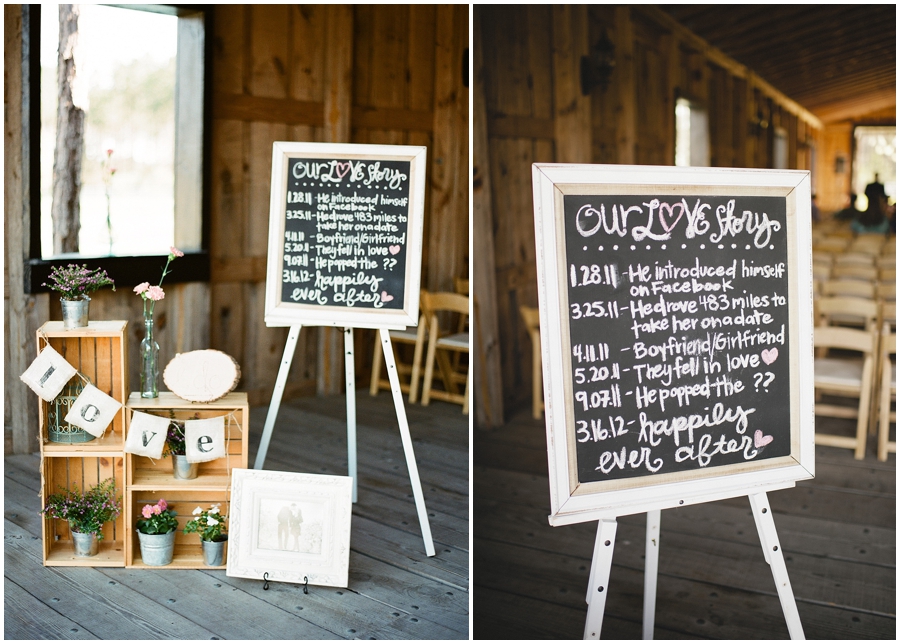 OUR LOVE story
1.28.11 - He introduced himself
on Facebook
3.25.11 - He drove 483 miles to
take her on a date
4.11.11 - Boyfriend/Girlfriend
5.20.11 - They fell in love
9.07.11 - He popped the ??
3.16.12 - happily
ever after
l o v e
OUR LOVE story
1.28.11 - He introduced himself
on Facebook
3.25.11 - He drove 483 miles to
take her on a date
4.11.11 - Boyfriend/Girlfriend
5.20.11 - They fell in love
9.07.11 - He popped the ??
3.16.12 - happily
ever after